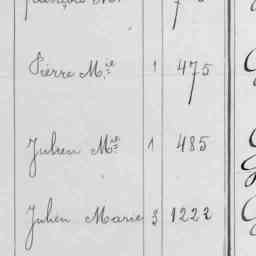 Pierre M.ie 1 475
Julien M.ie 1 485
Julien Marie 3 1222